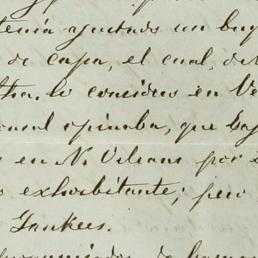 tenía ajustado un buq
de capa, el cual, de
tha. lo conidero en Ve
onsul opinaba, que baj
en N. Orleans por
exhorbitante; pero
Yankees.